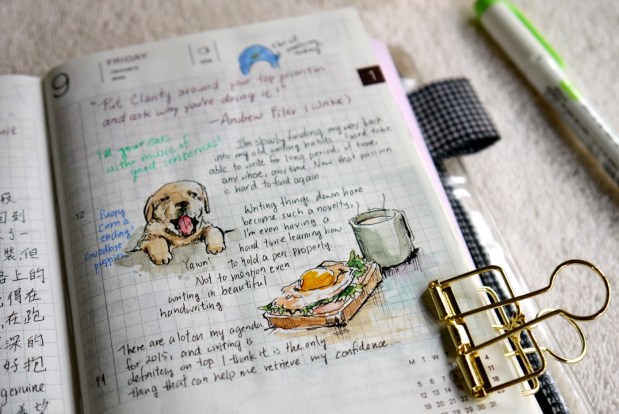 9
FRIDAY
January
1
"Put Clarity around your top priorities
and ask why you're doing it!"
~Andrew
(Wake)
Fill your ears
with the music of
good sentences!
I'm slowly finding my way back
into my old writing habits. I used to be
able to write for long periods of time,
any where, any time. Now that passion
is hard to find again.
12
Puppy
Cam is
ending!
Goodbye
puppies
Yawn!
Writing things down have
become such a novelty,
I'm even having a
hard time learning how
to hold a pen properly.
Not to mention even
writing in beautiful
handwriting.
There are a lot on my agenda
for 2015, and writing is
definitely on top. I think it is the only
thing that can help me retrieve my confidence...
回到
了一
裝,但
路上的
得在
在跑
深的
好抱
genuine
M T W T
4
11
18